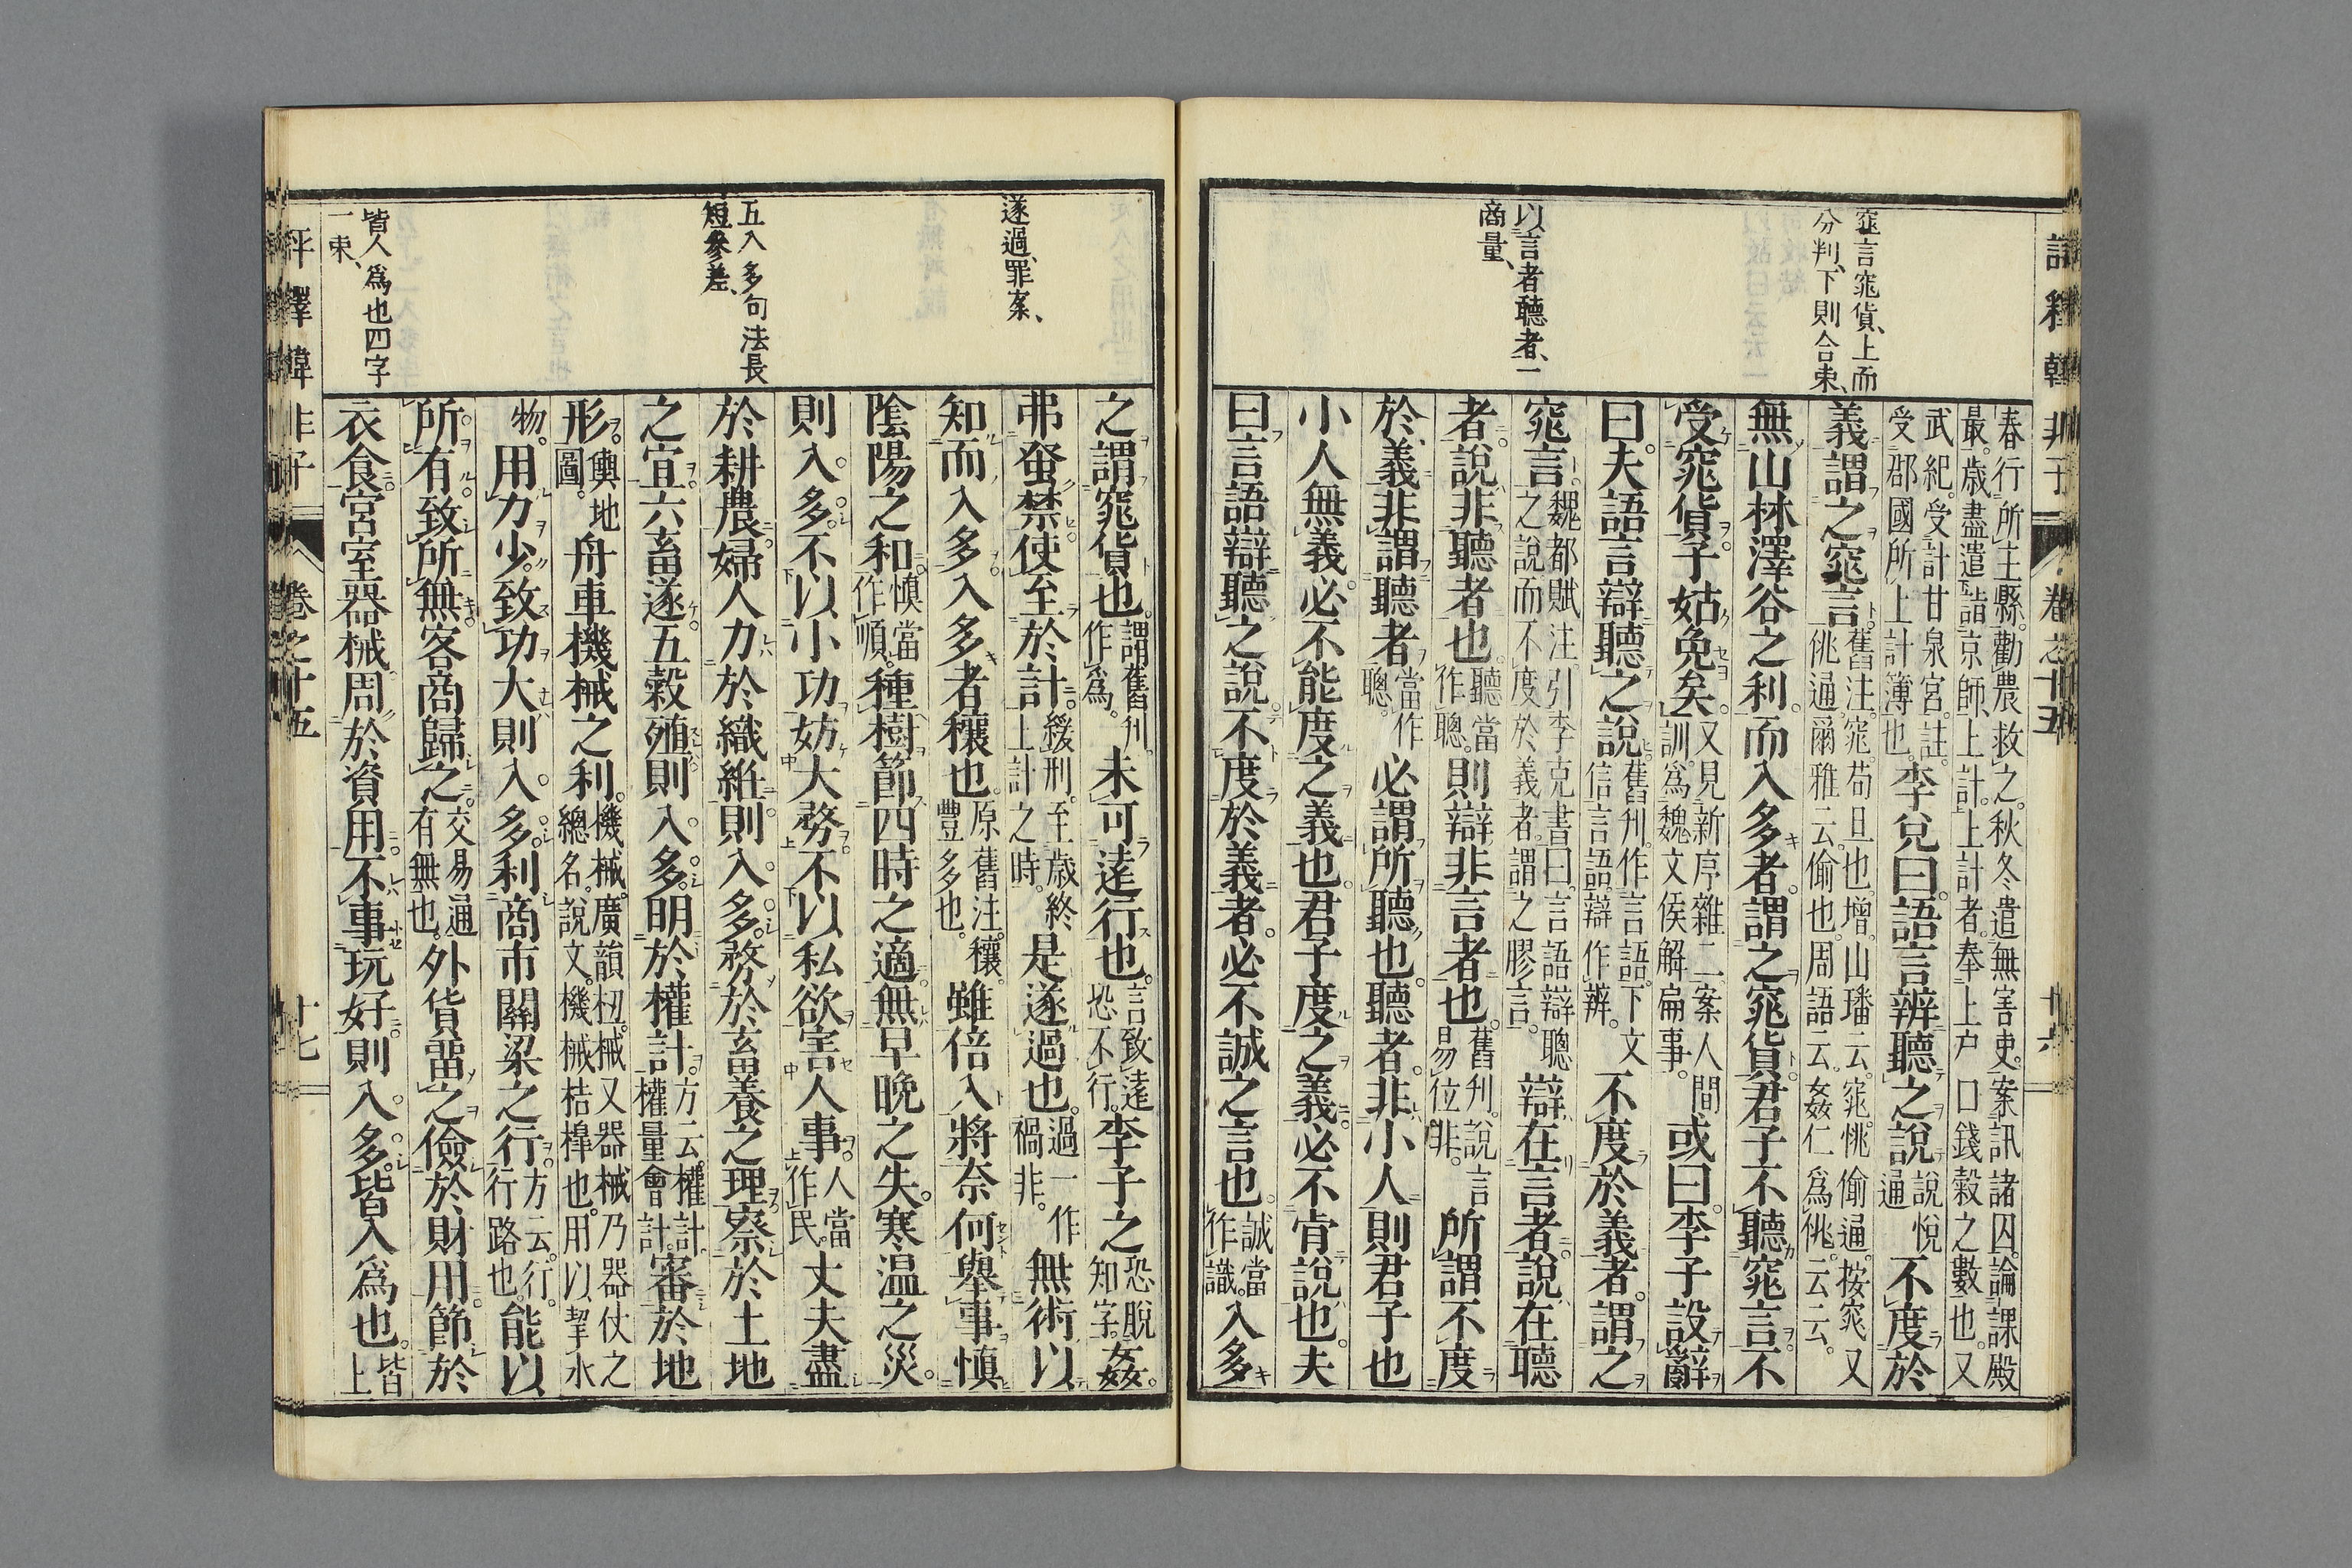 評釋韓非子 卷之十五 十六
窕言窕貨、上而
分判、下則合束、
以言者聽者、一
商量、
春行所主縣。勸農救之。秋冬遣無害吏。案訊諸囚。論課殿
最。歳盡遣詣京師、上計。上計者。奉上戶口錢穀之數也。又
武紀。受計甘泉宮。註。
受郡國所上計簿也。李兌曰。語言辨聽之說說悅通不度於
義謂之窕言。舊注。窕。苟且也。增。山璠云。窕恌偷通。按窕又
佻通。爾雅云。偷也。周語云。姦仁爲佻。云云。
無山林澤谷之利。而入多者。謂之窕貨。君子不聽窕言。不
受窕貨。子姑免矣。又見新序雜二。案人間訓。爲魏文侯解扁事。或曰。李子設辭
曰。夫語言辯聽之說。舊刋。作言語。下文信言語。辯作辨。不度於義者。謂之
窕言。魏都賦注。引李克書曰。言語辯聰之說而不度於義者。謂之膠言。辯在言者。說在聽
者。說非聽者也。聽當作聰。則辯非言者也。舊刋。說言易位非。所謂不度
於義。非謂聽者當作聰。必謂所聽也。聽者。非小人則君子也
小人無義。必不能度之義也。君子度之義。必不肯說也。夫
曰言語辯聽之說。不度於義者。必不誠之言也。誠當作識。入多
遂過、罪案、
五入多句法長
短參差、
皆人爲也四字
一束、
之謂窕貨也。謂舊刋。作爲。未可遠行也。言致遠恐不行。李子之恐脫知字。姦。
弗蚤禁。使至於計。緩刑。至歲終上計之時。是遂過也。過一作禍非。無術以
知而入多。入多者穰也。原舊注。穰。豐多也。雖倍入將奈何。舉事慎
陰陽之和。慎當作順。種樹節四時之適。無早晚之失。寒温之災。
則入多。不以小功妨大務。不以私欲害人事。人當作民。丈夫盡
於耕農。婦人力於織紝。則入多。務於畜養之理。察於土地
之宜。六畜遂。五穀殖。則入多。明於權計。方云。權計。權量會計。審於地
形。輿地圖。舟車機械之利。機械。廣韻。杻械。又器械乃器仗之總名。說文。機械桔槹也。用以挈水
物。用力少。致功大。則入多。利商市關梁之行。方云。行。行路也。能以
所有。致所無。客商歸之。交易通有無也。外貨畱之。儉於財用。節於
衣食。宮室器械。周於資用。不事玩好。則入多。皆入爲也。皆上
評釋韓非子 卷之十五 十七